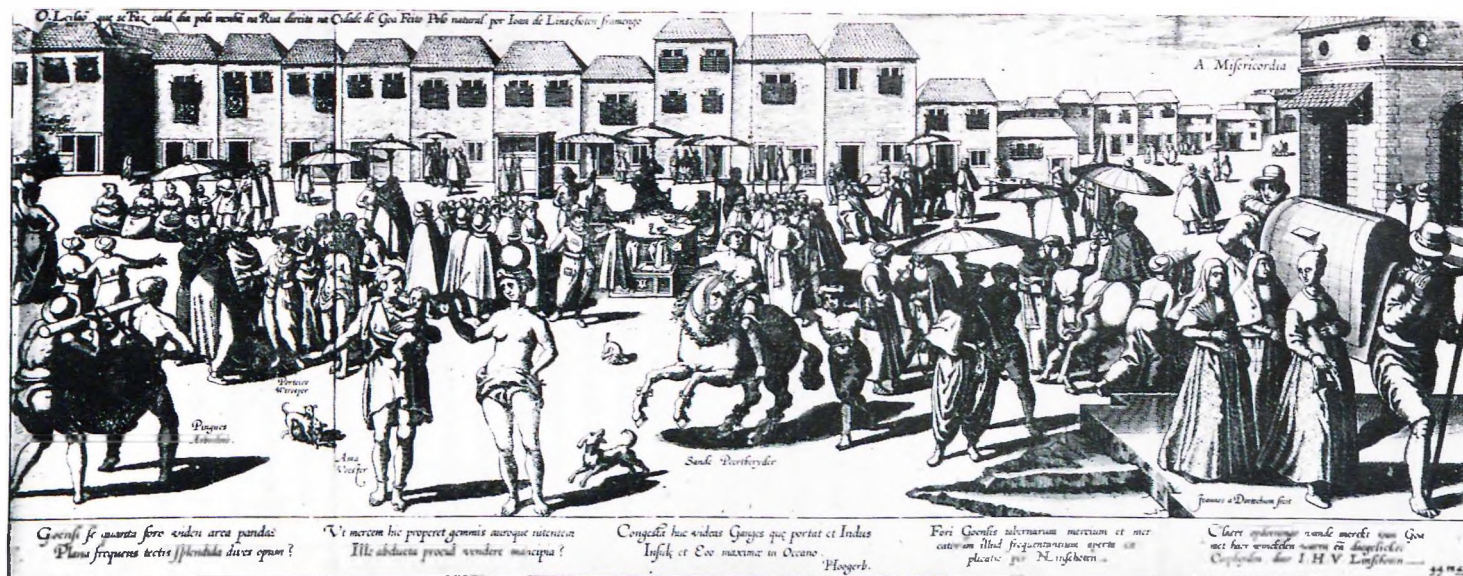 O Leilaõ que se Faz cada dia pola menhã na Rua direita na Cidade de Goa Feito Polo natural por Ioan de Linschoten framengo
A. Misericordia
Porteiro
Pingues
Ama
Voester
Sande Peertberyder
Joannes a Doetechum fecit
Goensi se quanta foro viden area pandat
Plana frequens tectis splendida dives opum?
Vt mercem hic properet gemmis auroque nitentem
Ille abducta procul vendere mancipia?
Congesta huc videas Ganges quae portat et Indus
Insulae et Eoo maximae in Oceano.
Hoogerb.
Fori Goensis tabernarum mercium et mer
catorum illud frequentantium aperta ex
plicatio per Linschoten
Claere vande merckt van Goa
met haer winckelen waren en dagelicxse
door I. H. V. Linschoten